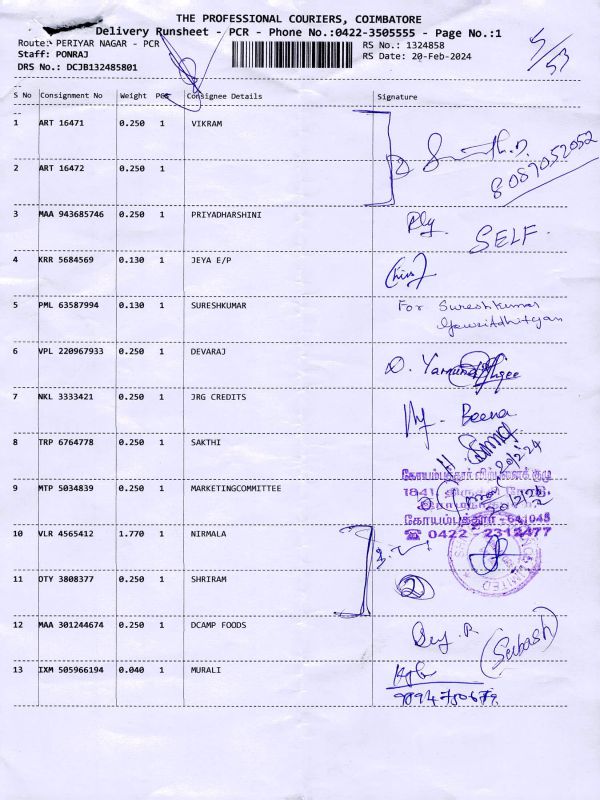 THE PROFESSIONAL COURIERS, COIMBATORE
Delivery Runsheet - PCR - Phone No.:0422-3505555 - Page No.:1
Route: PERIYAR NAGAR - PCR
RS No.: 1324858
Staff: PONRAJ
RS Date: 20-Feb-2024
DRS No.: DCJB132485801
S No Consignment No Weight PCS Consignee Details Signature
1 ART 16471 0.250 1 VIKRAM
8089052052
2 ART 16472 0.250 1
3 MAA 943685746 0.250 1 PRIYADHARSHINI
SELF.
4 KRR 5684569 0.130 1 JEYA E/P
5 PML 63587994 0.130 1 SURESHKUMAR For Sureshkumar
6 VPL 220967933 0.250 1 DEVARAJ
7 NKL 3333421 0.250 1 JRG CREDITS Beena
8 TRP 6764778 0.250 1 SAKTHI
20/2/24
9 MTP 5034839 0.250 1 MARKETINGCOMMITTEE
கோயம்புத்தூர் விற்பனைக் குழு
1841,
கோயம்புத்தூர் - 641045
☎ 0422 - 2312477
10 VLR 4565412 1.770 1 NIRMALA
11 OTY 3808377 0.250 1 SHRIRAM
2
12 MAA 301244674 0.250 1 DCAMP FOODS (Subash)
13 IXM 505966194 0.040 1 MURALI